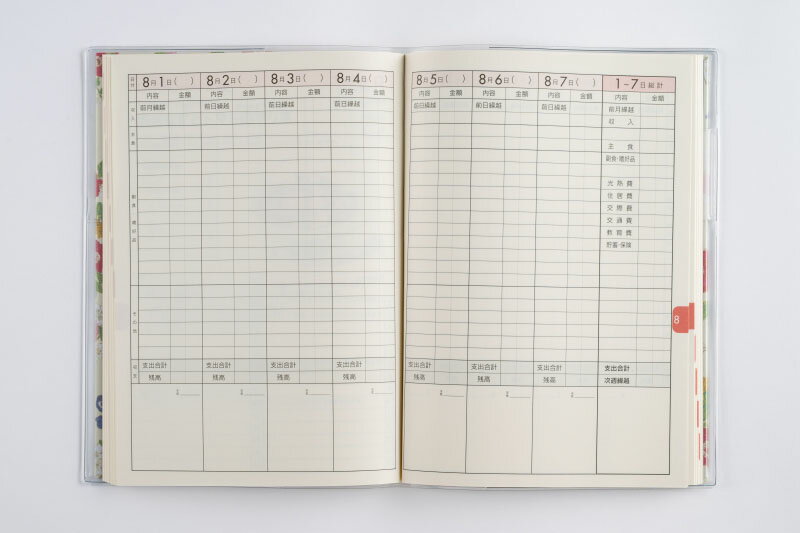 日付 8月1日( ) 8月2日( ) 8月3日( ) 8月4日( )
内容 金額 内容 金額 内容 金額 内容 金額
収入 前月繰越 前日繰越 前日繰越 前日繰越
主食
副食・嗜好品
その他
収支 支出合計 支出合計 支出合計 支出合計
残高 残高 残高 残高
8月5日( ) 8月6日( ) 8月7日( ) 1~7日総計
内容 金額 内容 金額 内容 金額 内容 金額
前日繰越 前日繰越 前日繰越 前月繰越
収入
主食
副食・嗜好品
光熱費
住居費
交際費
交通費
教育費
貯蓄・保険
8
支出合計 支出合計 支出合計 支出合計
残高 残高 残高 次週繰越